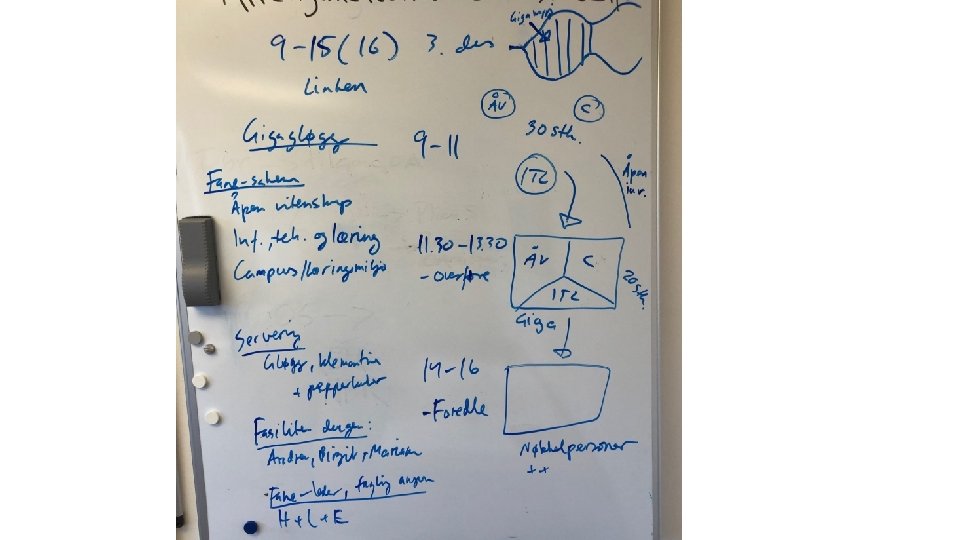 9-15(16) 3. des
Linken
Gigagløgg 9-11
Giga
ÅV
C
30 stk.
ITL
Åpen
inv.
Fane-sakene
Åpen vitenskap
Inf., tek. og læring
Campus/læringsmiljø
11.30-13.30
-overføre
ÅV
C
ITL
20 stk.
Giga
Servering
Gløgg, klementin
+ pepperkaker
14-16
-Foredle
Fasilitere dagen:
Andrea, Birgit, Mariann
Nøkkelpersoner
++
-Fane-leder, faglig ansvar
H+L+E